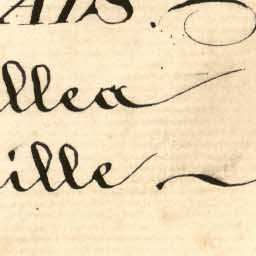 AIS.
llea
ille